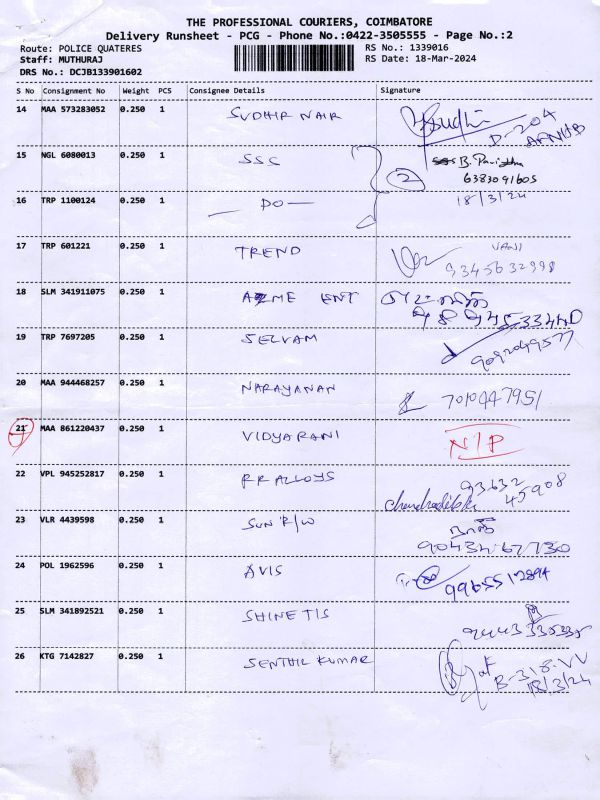 THE PROFESSIONAL COURIERS, COIMBATORE
Delivery Runsheet - PCG - Phone No.:0422-3505555 - Page No.:2
Route: POLICE QUATERES RS No.: 1339016
Staff: MUTHURAJ RS Date: 18-Mar-2024
DRS No.: DCJB133901602
S No Consignment No Weight PCS Consignee Details Signature
14 MAA 573283052 0.250 1 SUDHIR NAIR D-204
15 NGL 6080013 0.250 1 SSC 2 B.
6383091605
16 TRP 1100124 0.250 1 — DO — 18/3/24
17 TRP 601221 0.250 1 TREND VANI
9345632998
18 SLM 341911075 0.250 1 ENT
19 TRP 7697205 0.250 1 SELVAM 9092049577
20 MAA 944468257 0.250 1 NARAYANAN 7010447951
21 MAA 861220437 0.250 1 VIDYARANI N/P
22 VPL 945252817 0.250 1 RR ALLOYS 93632
45908
23 VLR 4439598 0.250 1 SUN R/W
90434 67730
24 POL 1962596 0.250 1 AVIS 9965512894
25 SLM 341892521 0.250 1 SHINE TIS
9443335335
26 KTG 7142827 0.250 1 SENTHIL KUMAR
18/3/24